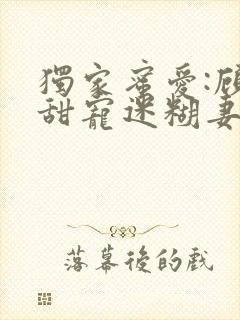 獨家蜜愛:顧
甜寵迷糊妻
落幕後的戲